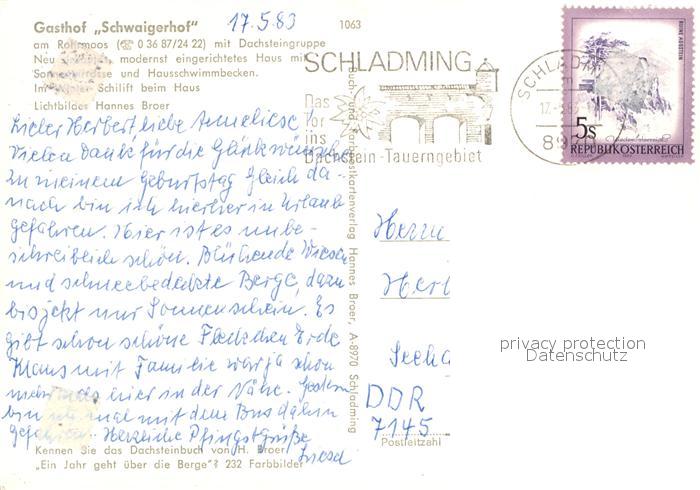 Gasthof „Schwaigerhof"
17.5.83
1063
am Rohrmoos (☎ 0 36 87/24 22) mit Dachsteingruppe
Neu modernst eingerichtetes Haus mit
Sonnenterrasse und Hausschwimmbecken.
Im Schilift beim Haus
Lichtbild Hannes Broer
SCHLADMING
Das
Tor
ins
Dachstein-Tauerngebiet
SCHLADM
17.-5.83
8970
RUINE AGGSTEIN
5s
REPUBLIK ÖSTERREICH
Lieber Herbert, liebe Anneliese,
Vielen Dank für die Glückwünsche
zu meinem Geburtstag. Gleich da-
nach bin ich hierher in Urlaub
gefahren. Hier ist es unbe-
schreiblich schön. Blühende Wiesen
und schneebedeckte Berge, dazu
bis jetzt nur Sonnenschein. Es
gibt schon schöne Fleckchen Erde.
Klaus mit Familie war ja schon
hier in der Nähe. Gestern
bin ich mal mit dem Bus dahin
gefahren. Herzliche Pfingstgrüße
Kennen Sie das Dachsteinbuch von H. Broer
„Ein Jahr geht über die Berge"? 232 Farbbilder
Buch- und Kunstpostkartenverlag Hannes Broer, A-8970 Schladming
Herrn
Herb
Seeha
DDR
7145
Postleitzahl
privacy protection
Datenschutz